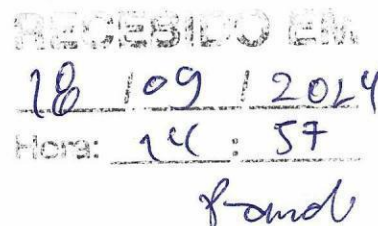 RECEBIDO EM
18 / 09 / 2024
Hora: 14 : 57